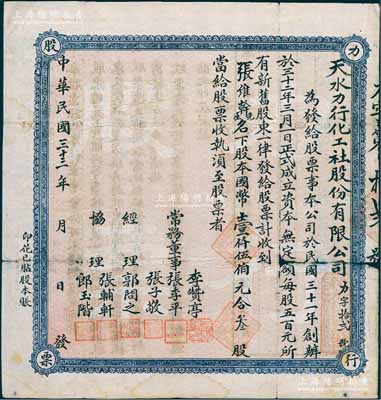 股 力
行 票
天水力行化工社股份有限公司 力字拾弍號
為發給股票事本公司於民國三十一年創辦
於三十二年三月一日正式成立資本無定額每股五百元所
有新舊股東一律發給股票計收到
張維乾名下股本國幣壹仟伍佰元合叁股
當給股票收執須至股票者
李贊亭
常務董事張季平
張子敬
經理郭問之
協理張輔軒
郎玉階
中華民國三十二年 月 日發
印花已貼股本賬
上海陽明拍賣